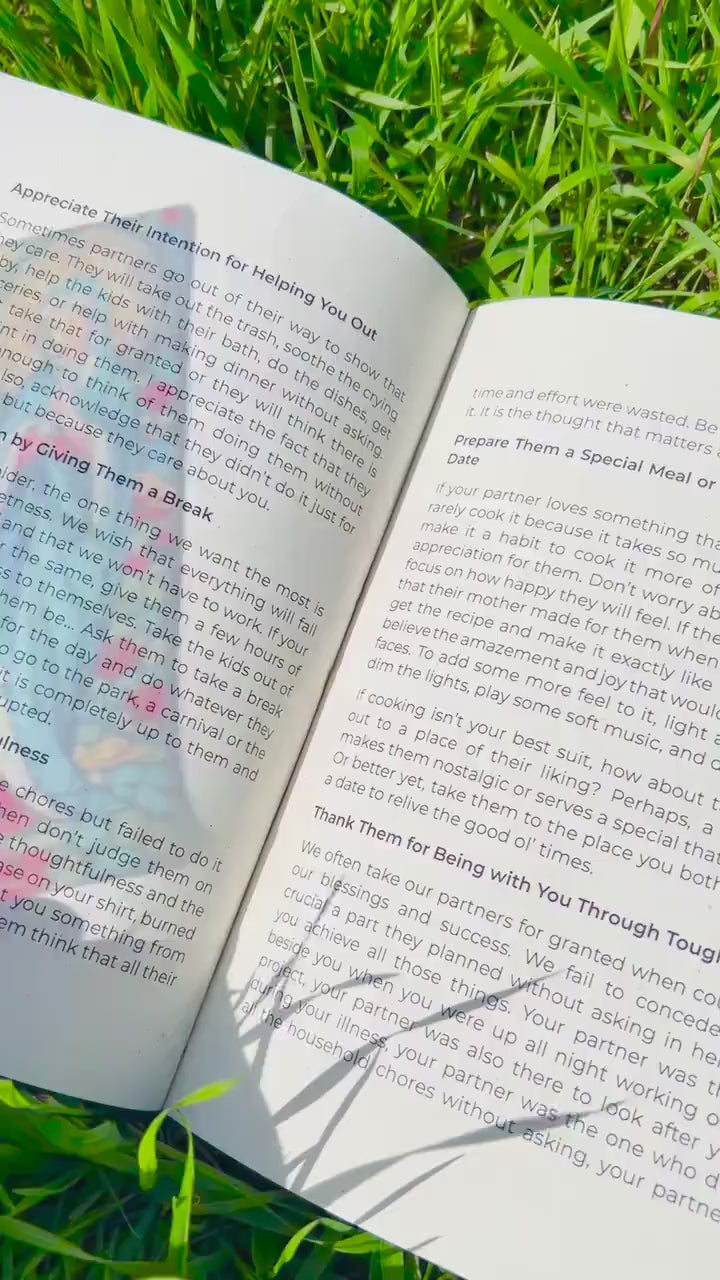 Appreciate Their Intention for Helping You Out
Sometimes partners go out of their way to show that
hey care. They will take out the trash, soothe the crying
by, help the kids with their bath, do the dishes, get
ceries, or help with making dinner without asking.
take that for granted or they will think there is
int in doing them, appreciate the fact that they
enough to think of them doing them without
lso, acknowledge that they didn't do it just for
but because they care about you.
n by Giving Them a Break
ider, the one thing we want the most is
etness. We wish that everything will fall
and that we won't have to work. If your
r the same, give them a few hours of
ss to themselves. Take the kids out of
hem be.. Ask them to take a break
for the day and do whatever they
o go to the park, a carnival or the
it is completely up to them and
upted.
ulness
e chores but failed to do it
hen don't judge them on
e thoughtfulness and the
ase on your shirt, burned
t you something from
em think that all their
time and effort were wasted. Be
it. It is the thought that matters a
Prepare Them a Special Meal or
Date
If your partner loves something tha
rarely cook it because it takes so mu
make it a habit to cook it more of
appreciation for them. Don't worry ab
focus on how happy they will feel. If the
that their mother made for them when
get the recipe and make it exactly like
believe the amazement and joy that would
faces. To add some more feel to it, light a
dim the lights, play some soft music, and d
If cooking isn't your best suit, how about t
out to a place of their liking? Perhaps, a
makes them nostalgic or serves a special that
Or better yet, take them to the place you both
a date to relive the good ol' times.
Thank Them for Being with You Through Tough
We often take our partners for granted when co
our blessings and success. We fail to concede
crucial a part they planned without asking in hel
you achieve all those things. Your partner was th
beside you when you were up all night working o
project, your partner was also there to look after y
during your illness, your partner was the one who d
all the household chores without asking, your partne